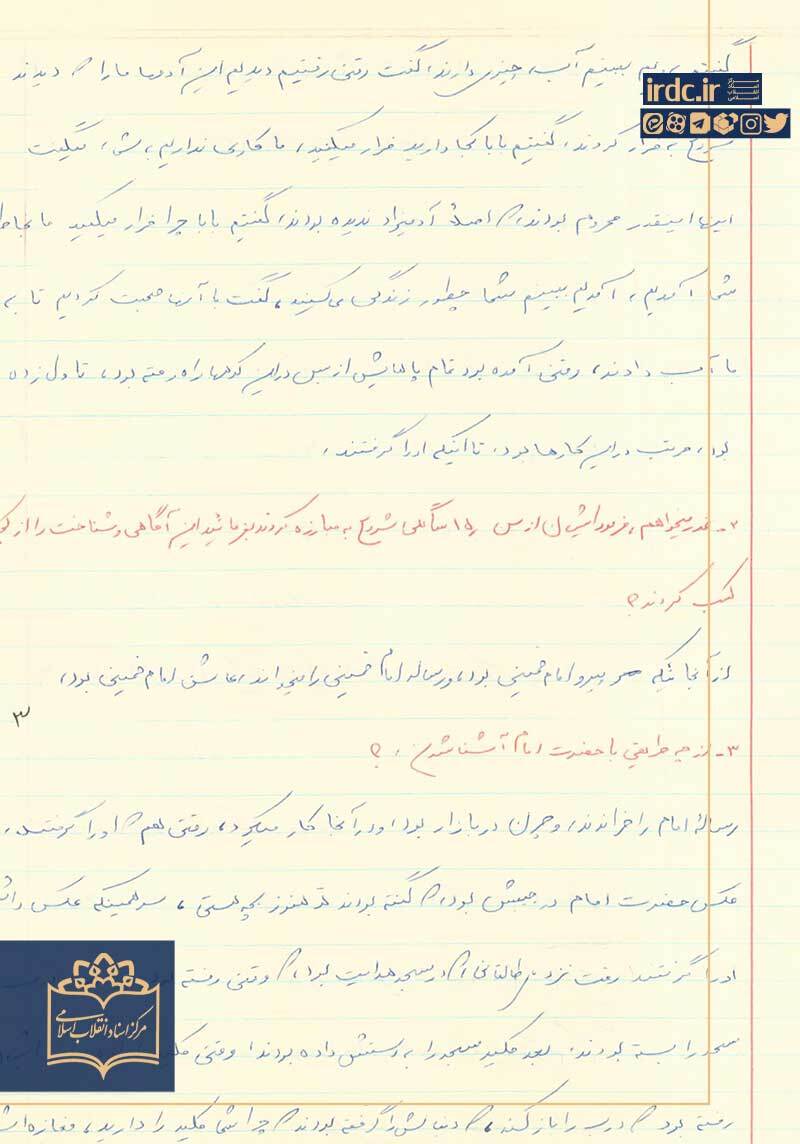 irdc.ir
مرکز اسناد انقلاب اسلامی
ببینیم آب، چیزی دارند، گفت وقتی رفتیم دیدیم این آدمها ما را که دیدند
شروع به فرار کردند، گفتیم بابا کجا دارید فرار میکنید، ما کاری نداریم، میگفت
اینها اینقدر محروم بودند که اصلاً آدمیزاد ندیده بودند، گفتیم بابا چرا فرار میکنید ما بخاطر
شما آمدیم، آمدیم ببینیم شما چطور زندگی می‌کنید، گفت با آنها صحبت کردیم تا به
ما آب دادند، وقتی آمده بود تمام پاهایش از بس در این کوهها راه رفته بود، تاول زده
بود، مرتب در این کارها بود، تا اینکه او را گرفتند.
۲- عذر میخواهم، فرمودید ایشان از سن ۱۵ سالگی شروع به مبارزه کردند بفرمائید این آگاهی و شناخت را از کجا
کسب کردند؟
از آنجائیکه پیرو امام خمینی بود، و رساله امام خمینی را میخواند، عاشق امام خمینی بود،
۳
۳- از چه طریقی با حضرت امام آشنا شدن، ؟
رسالهٔ امام را خواندند، و چون در بازار بود، و در آنجا کار میکرد، وقتی هم که او را گرفتند،
عکس حضرت امام در جیبش بود، که گفته بودند تو هنوز بچه هستی، سر همینکه عکس داشت
او را گرفتند رفت نزد طالقانی که در مسجد هدایت بود، که وقتی رفته
مسجد را بسته بودند، بعد کلید مسجد را به دستش داده بودند، وقتی
رفته بود که درب را باز کند، که دنبالش را گرفته بودند که چرا شما کلید را دارید، مغازه
مرکز اسناد انقلاب اسلامی